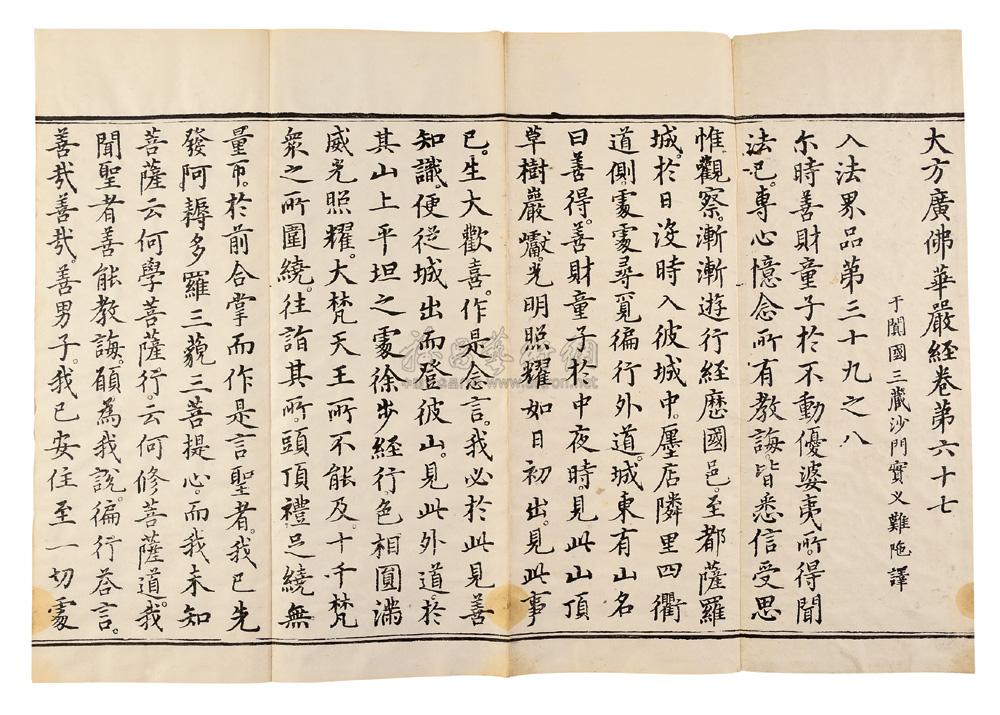 大方廣佛華嚴經卷第六十七
于闐國三藏沙門實义難陁譯
入法界品第三十九之八
尒時善財童子於不動優婆夷所。得聞
法已。專心憶念所有教誨皆悉信受思
惟觀察。漸漸遊行經歷國邑。至都薩羅
城。於日没時入彼城中。㕓店隣里四衢
道側。處處尋覓徧行外道。城東有山名
曰善得。善財童子於中夜時。見此山頂
草樹巖巘。光明照耀如日初出。見此事
已。生大歡喜。作是念言。我必於此見善
知識。便從城出而登彼山。見此外道。於
其山上平坦之處徐步經行。色相圓滿
威光照耀。大梵天王所不能及。十千梵
衆之所圍繞。往詣其所。頭頂禮足繞無
量帀。於前合掌而作是言聖者。我已先
發阿。耨多羅三藐三菩提心。而我未知
菩薩云何學菩薩行。云何修菩薩道。我
聞聖者善能教誨。願為我說。徧行荅言。
善哉善哉善男子。我已安住至一切處